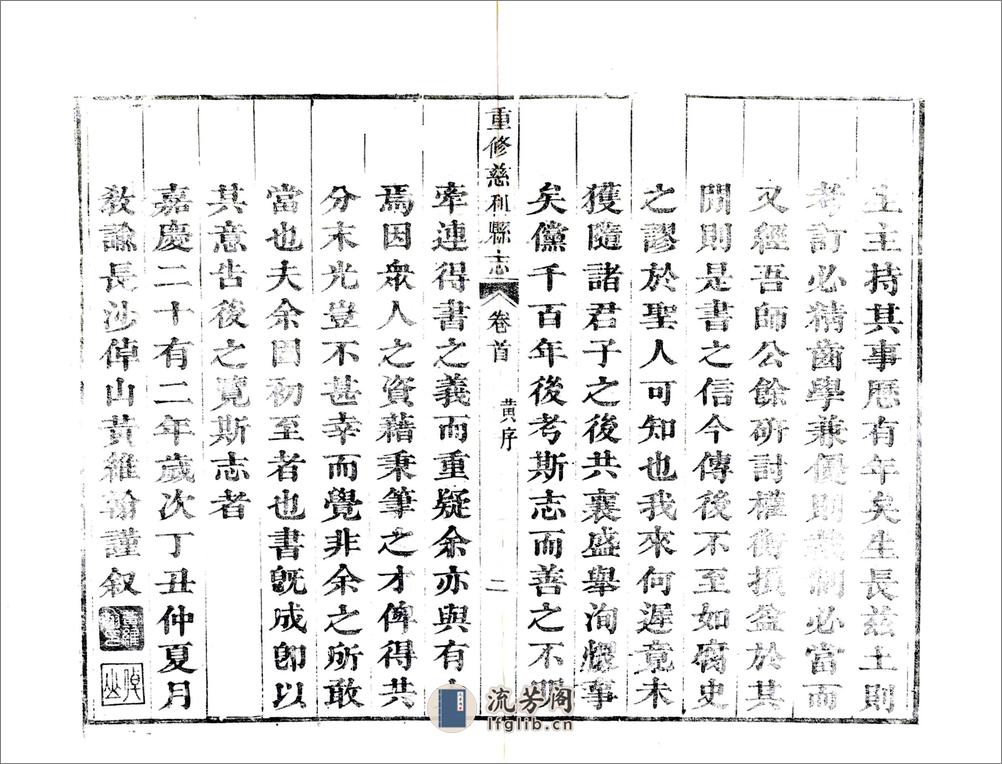 士主持其事歷有年矣生長茲土則
考訂必精齒學兼優則裁制必當而
又經吾師公餘硏討權衡損益於其
間則是書之信今傳後不至如腐史
之謬於聖人可知也我來何遲竟未
獲隨諸君子之後共襄盛舉洵憾事
矣儻千百年後考斯志而善之不
重修慈利縣志
卷首
黄序
二
牽連得書之義而重疑余亦與有
焉因衆人之資藉秉筆之才俾得共
分末光豈不甚幸而覺非余之所敢
當也夫余固初至者也書旣成卽以
其意告後之覽斯志者
嘉慶二十有二年歲次丁丑仲夏月
敎諭長沙倬山黄維翰謹叙
倬山
流芳阁
lfglib.cn